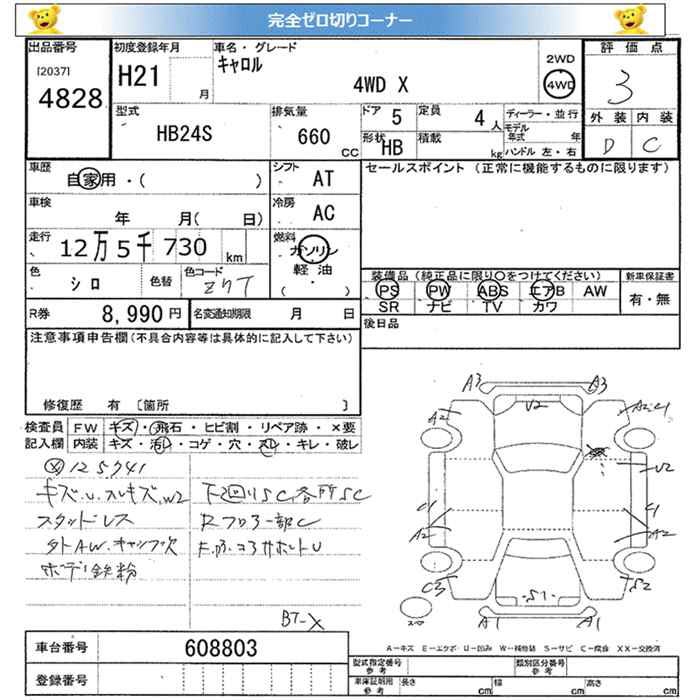 完全ゼロ切りコーナー
出品番号
[2037]
4828
初度登録年月
H21
月
車名・グレード
キャロル
4WD X
2WD
4WD
評価点
3
外装 内装
D C
型式
HB24S
排気量
660
CC
ドア 5
定員 4 人
形状 HB
積載 kg
ディーラー・並行
モデル年式 年
ハンドル 左・右
車歴
自家用・( )
シフト
AT
セールスポイント (正常に機能するものに限ります)
車検
年 月( 日)
冷房
AC
走行
12万5千730 km
燃料
ガソリン
軽油
( )
色
シロ
色替
色コード
Z7T
装備品(純正品に限り○をつけてください)
PS PW ABS エアB AW
SR ナビ TV カワ
新車保証書
有・無
R券
8,990円
名変通知期限
月 日
後日品
注意事項申告欄(不具合内容等は具体的に記入して下さい)
修復歴 有 [箇所 ]
検査員記入欄
FW キズ・飛石・ヒビ割・リペア跡・×要
内装 キズ・汚レ・コゲ・穴・スレ・キレ・破レ
125741
キズ.U.スレキズ.W2
スタッドレス
外AW.キャップ欠
ボデー鉄粉
下回りSC各所SC
Rフロアー部C
BT-X
A3
A3
A2
V2
A2.C1
U2
C1
A2
C1
A2
C3
S1
S2
A1
A1
A-キズ E-エクボ U-凹み W-補修跡 S-サビ C-腐食 XX-交換済
車台番号
608803
登録番号
型式指定番号
参考
類別区分番号
参考
車庫証明用
参考
長さ cm
幅 cm
高さ cm